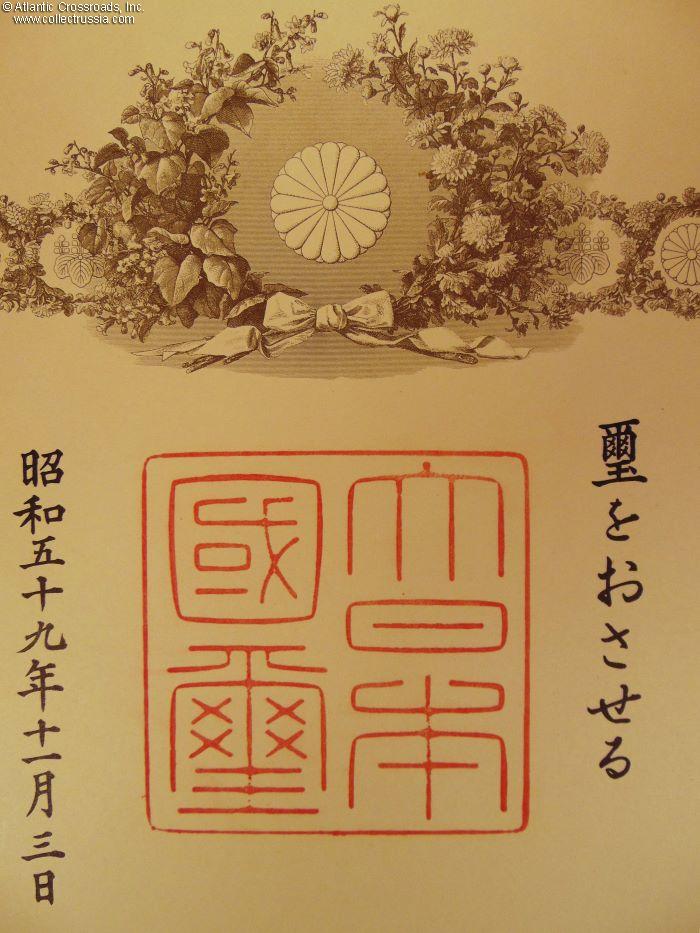 © Atlantic Crossroads, Inc.
www.collectrussia.com
璽をおさせる
大日本
國璽
昭和五十九年十一月三日